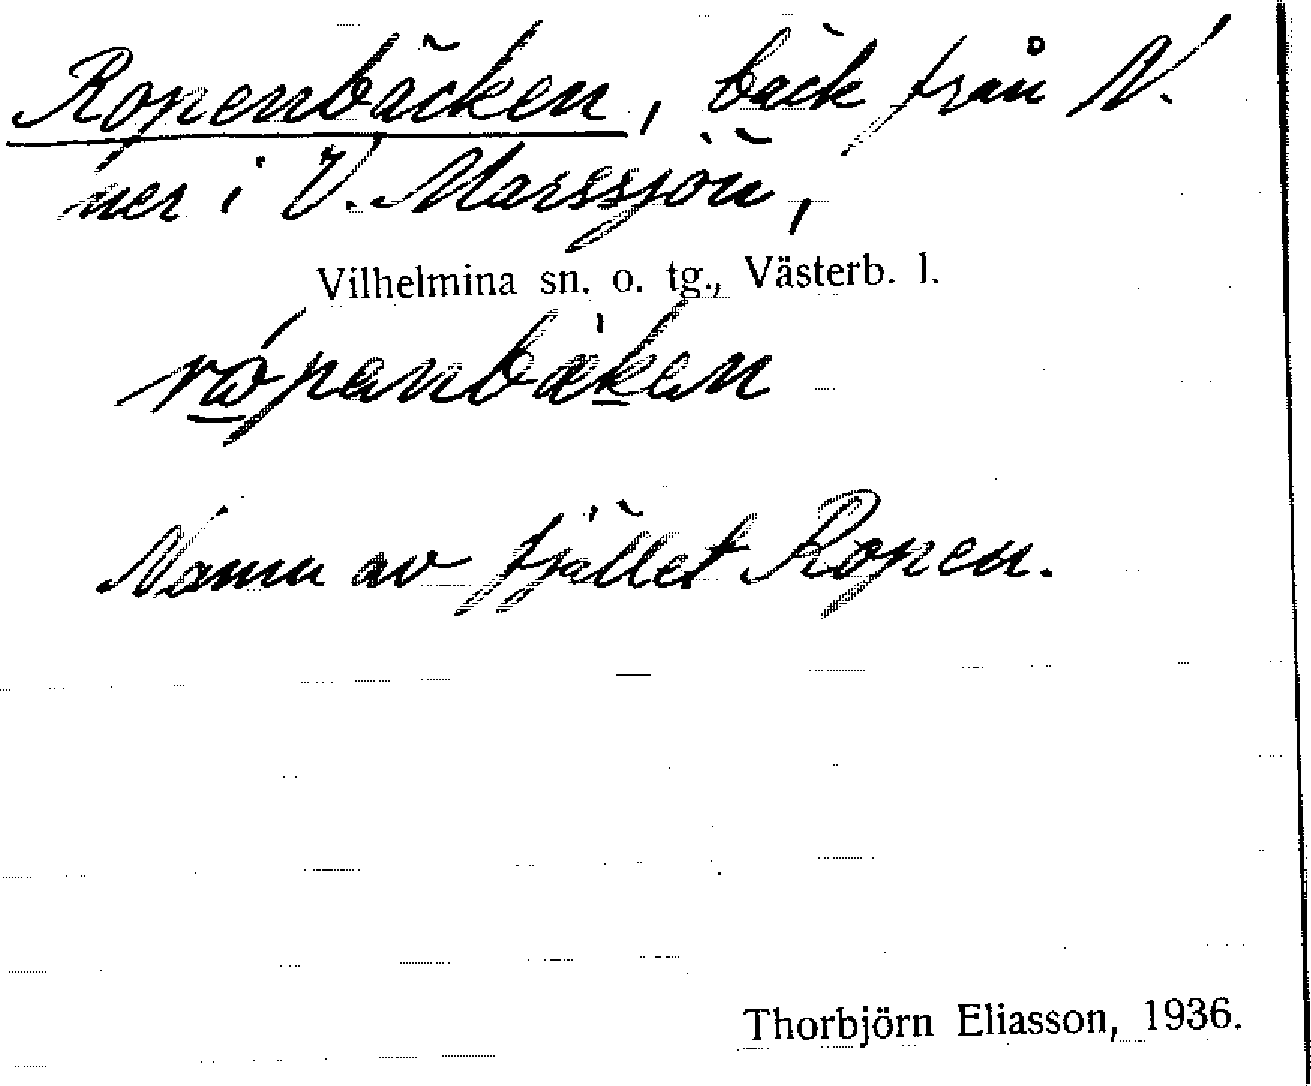 Ropenbäcken, bäck från N.
ner i V. Marssjön,
Vilhelmina sn. o. tg., Västerb. l.
Namn av fjället Ropen.
Thorbjörn Eliasson, 1936.